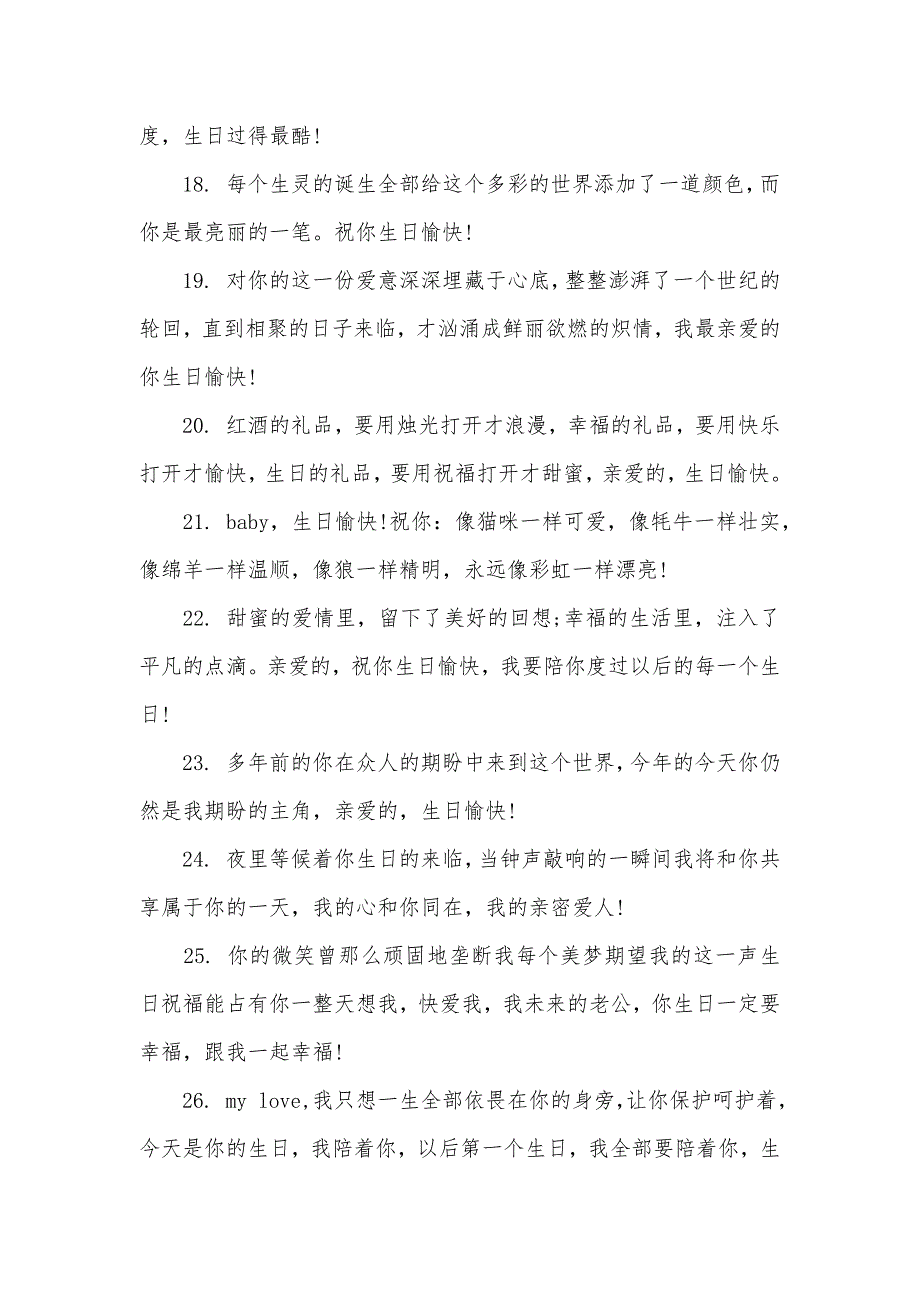 度，生日过得最酷!
18. 每个生灵的诞生全部给这个多彩的世界添加了一道颜色，而
你是最亮丽的一笔。祝你生日愉快!
19. 对你的这一份爱意深深埋藏于心底，整整澎湃了一个世纪的
轮回，直到相聚的日子来临，才汹涌成鲜丽欲燃的炽情，我最亲爱的
你生日愉快!
20. 红酒的礼品，要用烛光打开才浪漫，幸福的礼品，要用快乐
打开才愉快，生日的礼品，要用祝福打开才甜蜜，亲爱的，生日愉快。
21. baby，生日愉快!祝你：像猫咪一样可爱，像牦牛一样壮实，
像绵羊一样温顺，像狼一样精明，永远像彩虹一样漂亮!
22. 甜蜜的爱情里，留下了美好的回想;幸福的生活里，注入了
平凡的点滴。亲爱的，祝你生日愉快，我要陪你度过以后的每一个生
日!
23. 多年前的你在众人的期盼中来到这个世界，今年的今天你仍
然是我期盼的主角，亲爱的，生日愉快!
24. 夜里等候着你生日的来临，当钟声敲响的一瞬间我将和你共
享属于你的一天，我的心和你同在，我的亲密爱人!
25. 你的微笑曾那么顽固地垄断我每个美梦期望我的这一声生
日祝福能占有你一整天想我，快爱我，我未来的老公，你生日一定要
幸福，跟我一起幸福!
26. my love,我只想一生全部依畏在你的身旁，让你保护呵护着，
今天是你的生日，我陪着你，以后第一个生日，我全部要陪着你，生